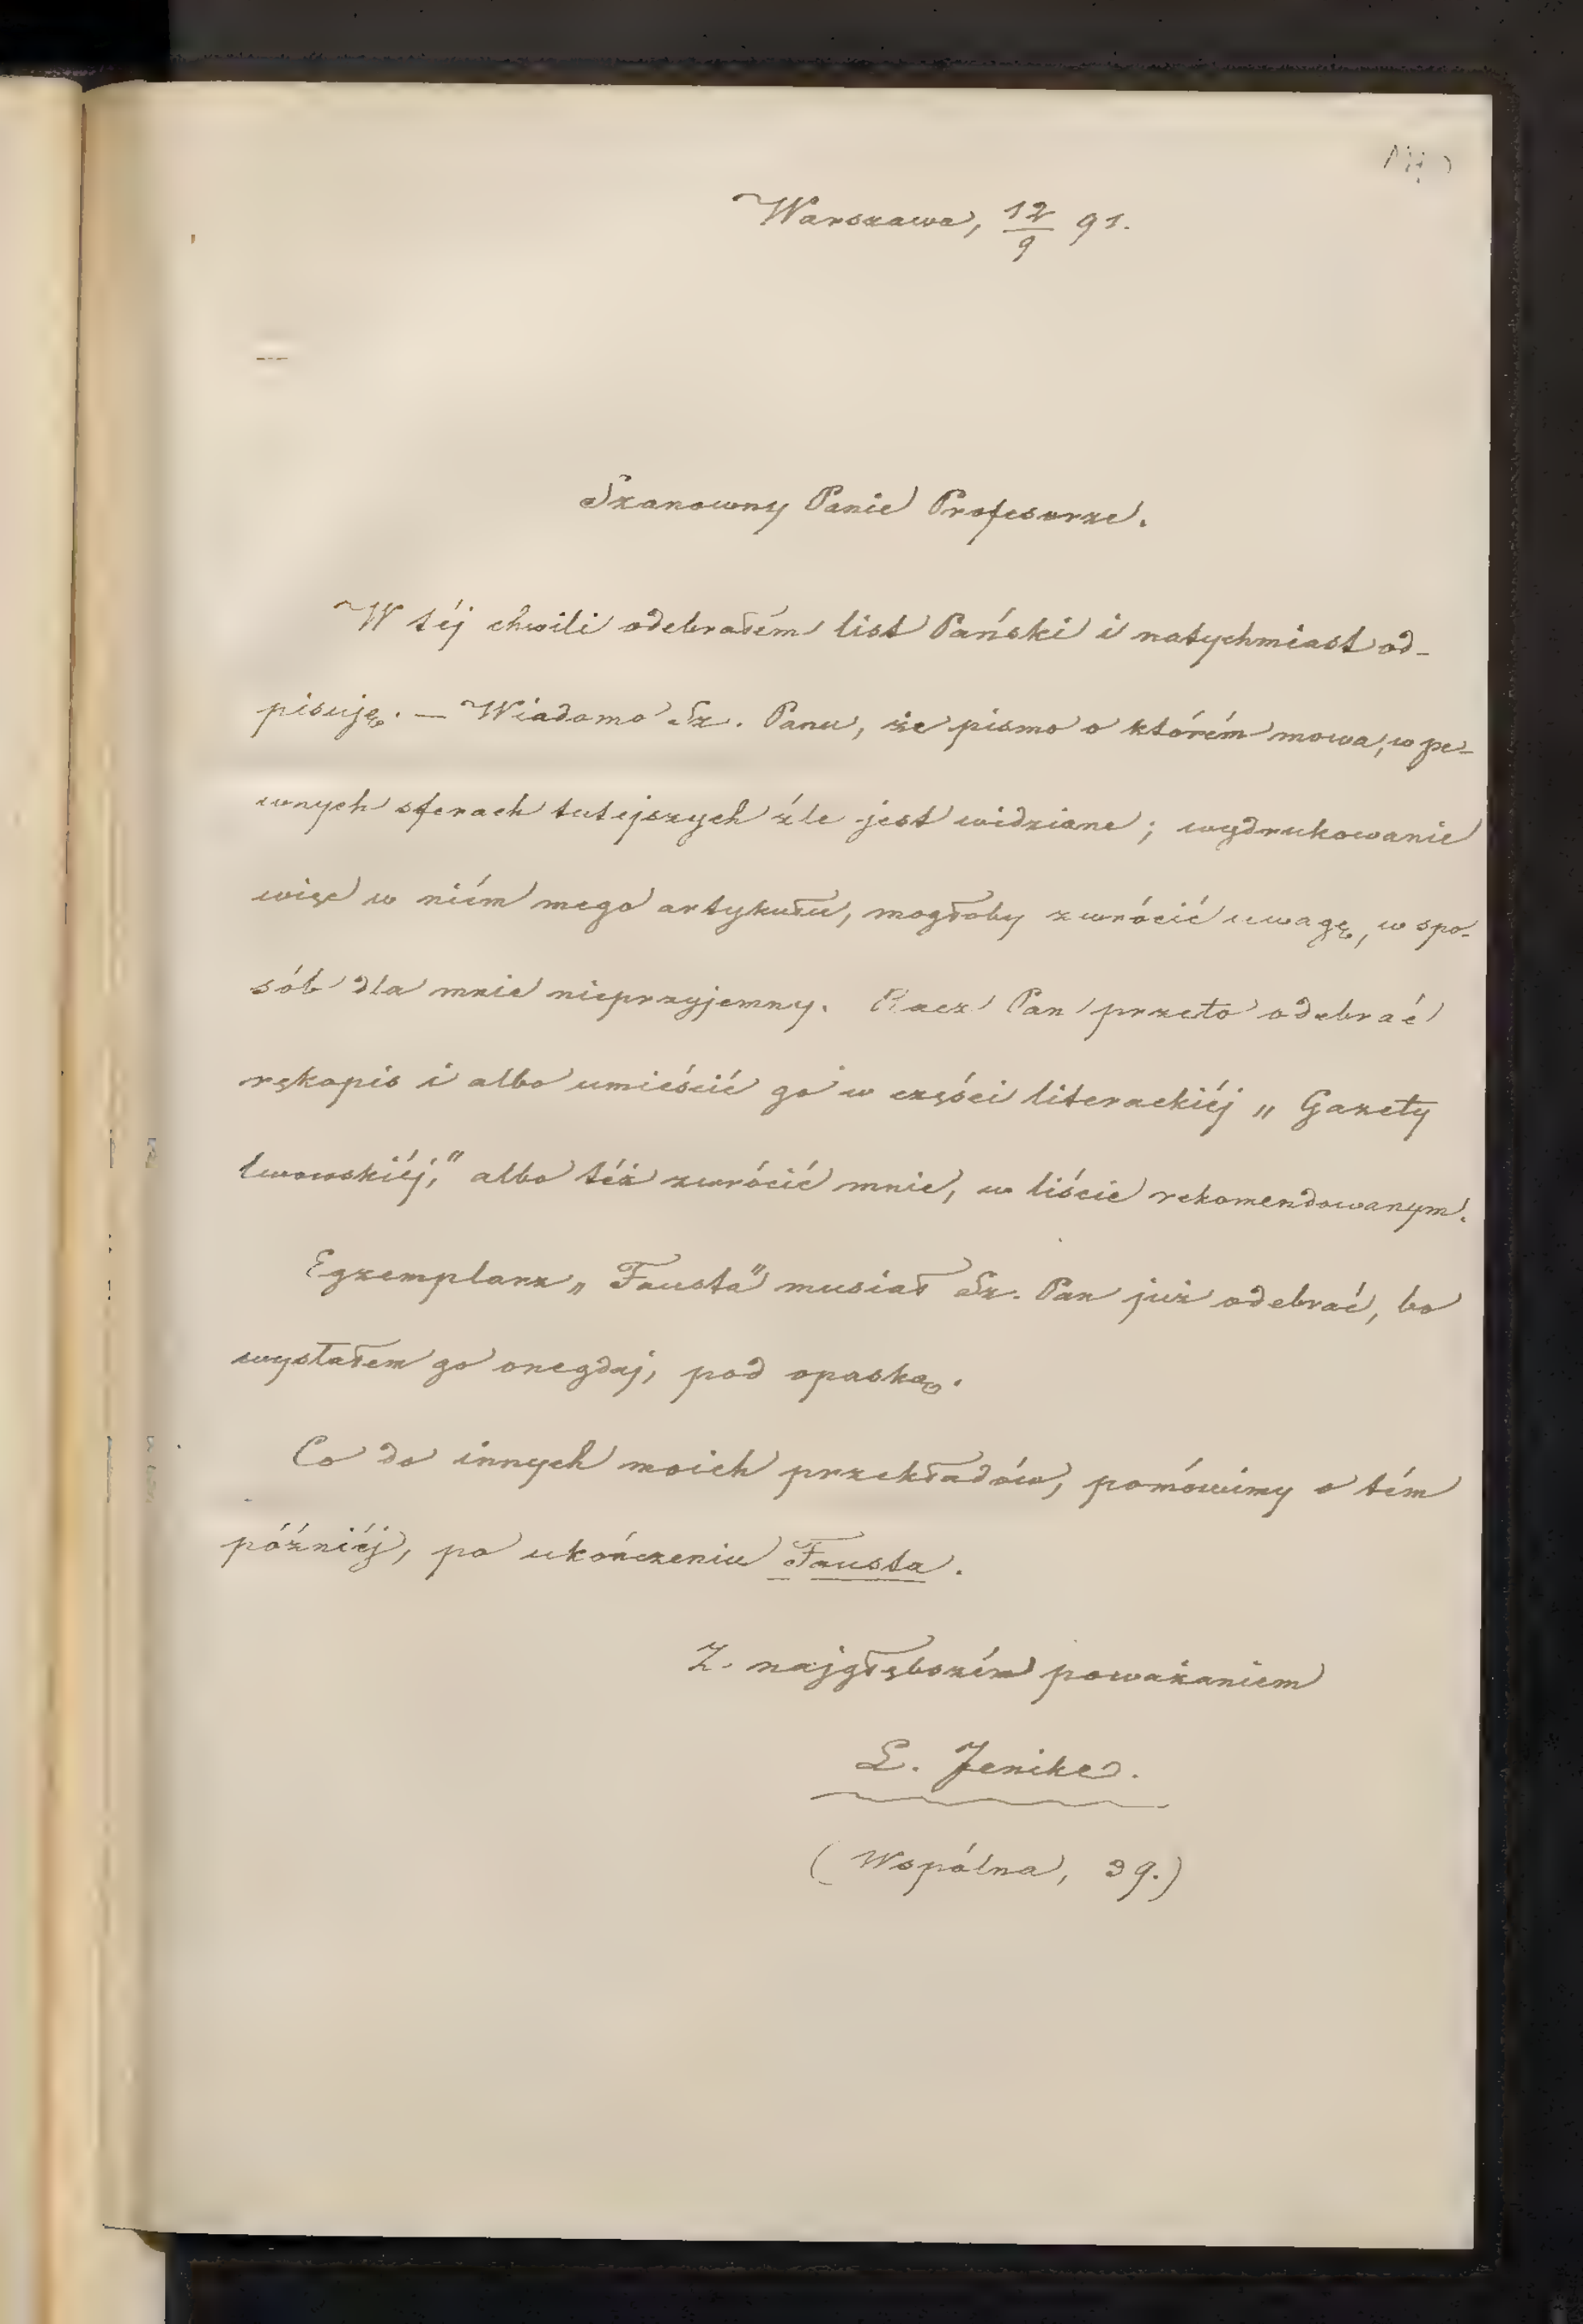 Warszawa, 12/9 91.
Szanowny Panie Profesorze.
W téj chwili odebrałém list Pański i natychmiast od-
pisuję. — Wiadomo Sz. Panu, że pismo o którém mowa, w pe-
wnych sferach tutejszych źle jest widziane; wydrukowanie
więc w niém mego artykułu, mogłoby zwrócić uwagę, w spo-
sób dla mnie nieprzyjemny. Racz Pan przeto odebrać
rękopis i albo umieścić go w części literackiéj „Gazety
lwowskiéj," albo téż zwrócić mnie, w liście rekomendowanym.
Egzemplarz „Fausta" musiał Sz. Pan już odebrać, bo
wysłałem go onegdaj, pod opaską.
Co do innych moich przekładów, pomówimy o tém
późniéj, po ukończeniu Fausta.
Z najgłębszém poważaniem
L. Jenike.
(Wspólna, 39.)